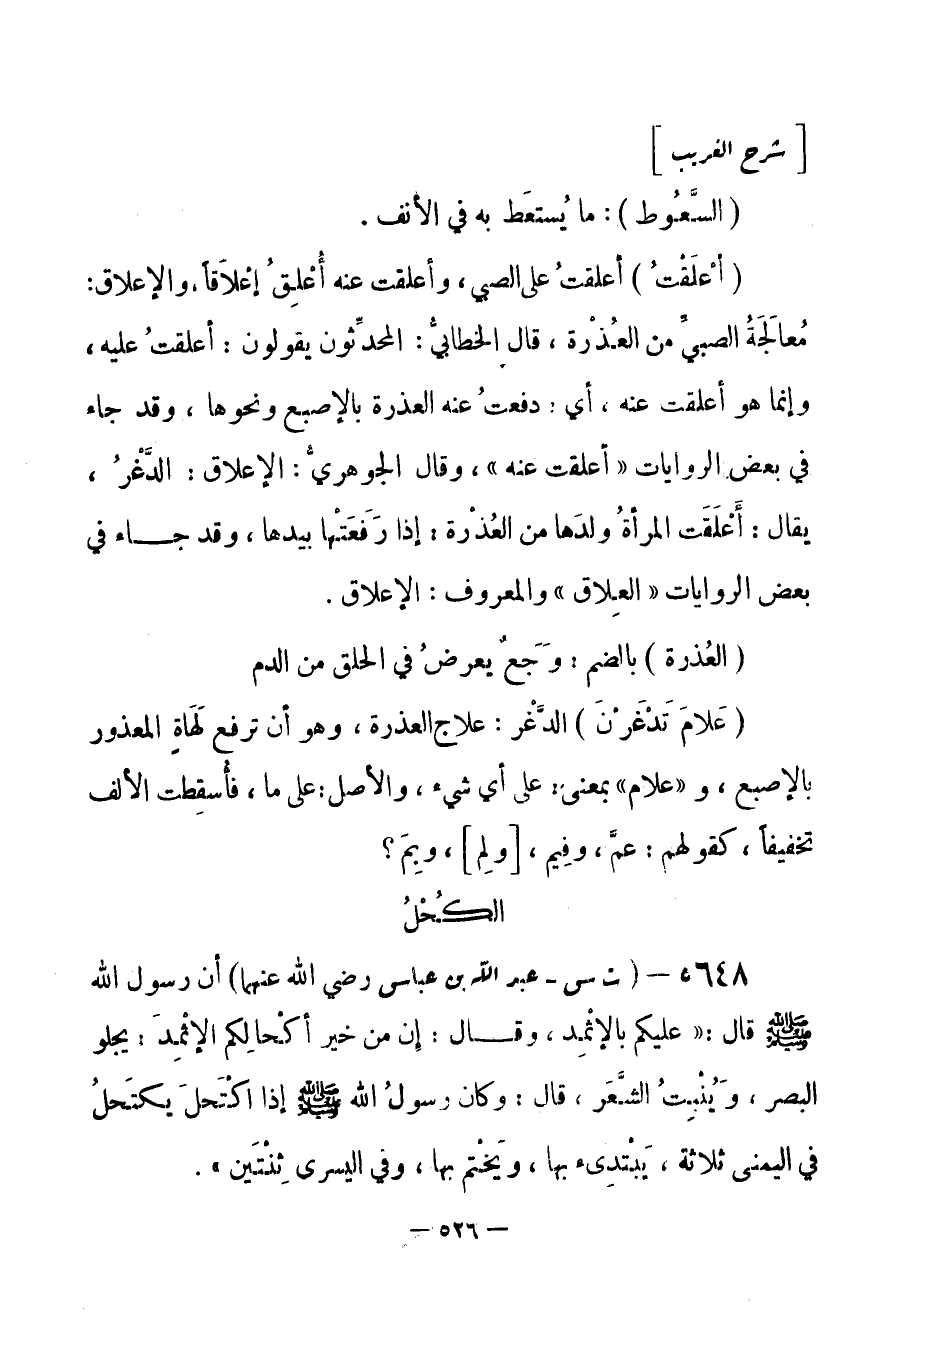 [ شرح الغريب ]
( السَّعُوط ) : ما يُستعَط به في الأنف .
( أعْلَقْتُ ) أعلقتُ على الصبي ، وأعلقت عنه أُعْلِقُ إعْلاَقاً، والإعلاق:
مُعالَجَةُ الصبيِّ من العُذْرة ، قال الخطابيُّ : المحدِّثون يقولون : أعلقتُ عليه،
وإنما هو أعلقت عنه ، أي : دفعتُ عنه العذرة بالإصبع ونحوها ، وقد جاء
في بعض الروايات « أعلقت عنه » ، وقال الجوهريُّ : الإعلاق : الدَّغْرُ ،
يقال : أَعْلَقَت المرأةُ ولدَها من العُذْرة : إذا رَفَعَتْها بيدها ، وقد جـــاء في
بعض الروايات « العِلاق » والمعروف : الإعلاق .
( العُذرة ) بالضم : وَجَعٌ يعرضُ في الحلق من الدم
( عَلامَ تَدْغَرْنَ ) الدَّغْر : علاج العذرة ، وهو أن ترفع لَهَاةِ المعذور
بالإصبع ، و «علام» بمعنى: على أي شيء ، والأصل: على ما ، فأُسقِطت الألف
تخفيفاً ، كقولهم : عمَّ ، وفِيم ، [ولِم] ، وبِمَ ؟
الكُحْلُ
٥٦٤٨ – ( ت س ـ عبد الله بن عباس رضي الله عنهما) أن رسول الله
ﷺ قال :« عليكم بالإثْمِد ، وقـــال : إن من خير أكْحالِكم الإثْمِدَ : يجلو
البصر ، ويُنْبِتُ الشَّعَر ، قال : وكان رسولُ الله ﷺ إذا اكْتَحلَ يكتَحلُ
في اليمنى ثلاثة ، يَبْتَدِىء بها ، ويَخْتم بها ، وفي اليسرى ثِنْتَين » .
– ٥٢٦ –